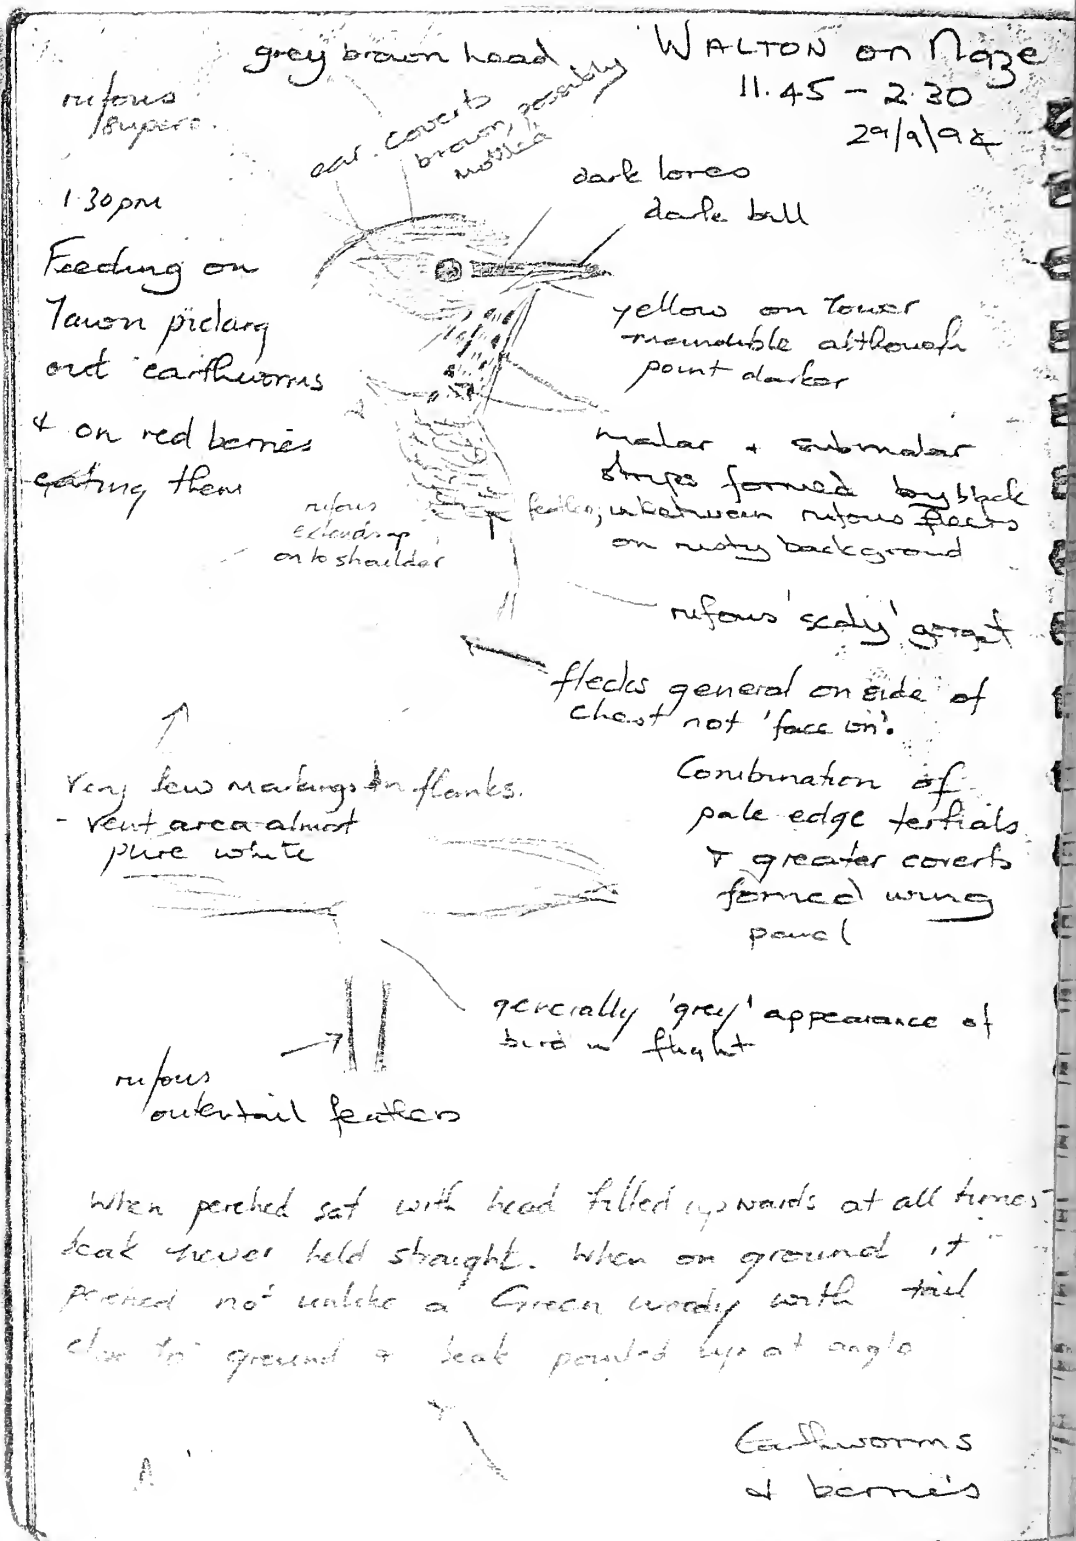 grey brown head
WALTON on Naze
11.45 - 2.30
29/9/94
rufous
superc.
ear coverts
brown, possibly
mottled
dark lores
dark bill
1.30pm
Feeding on
lawn picking
out earthworms
& on red berries
eating them
yellow on lower
mandible although
point darker
malar + submalar
strips formed by black
feathers, inbetween rufous flecks
on rusty background
rufous
extends up
on to shoulder
rufous 'scaly' gorget
flecks general on side of
chest not 'face on'.
Very few markings on flanks.
- vent area almost
pure white
Combination of
pale edge tertials
& greater coverts
formed wing
panel
generally 'grey' appearance of
bird in flight
rufous
outertail feathers
When perched sat with head tilted upwards at all times
beak never held straight. When on ground it
perched not unlike a Green woody with tail
close to ground & beak pointed up at angle
Earthworms
& berries